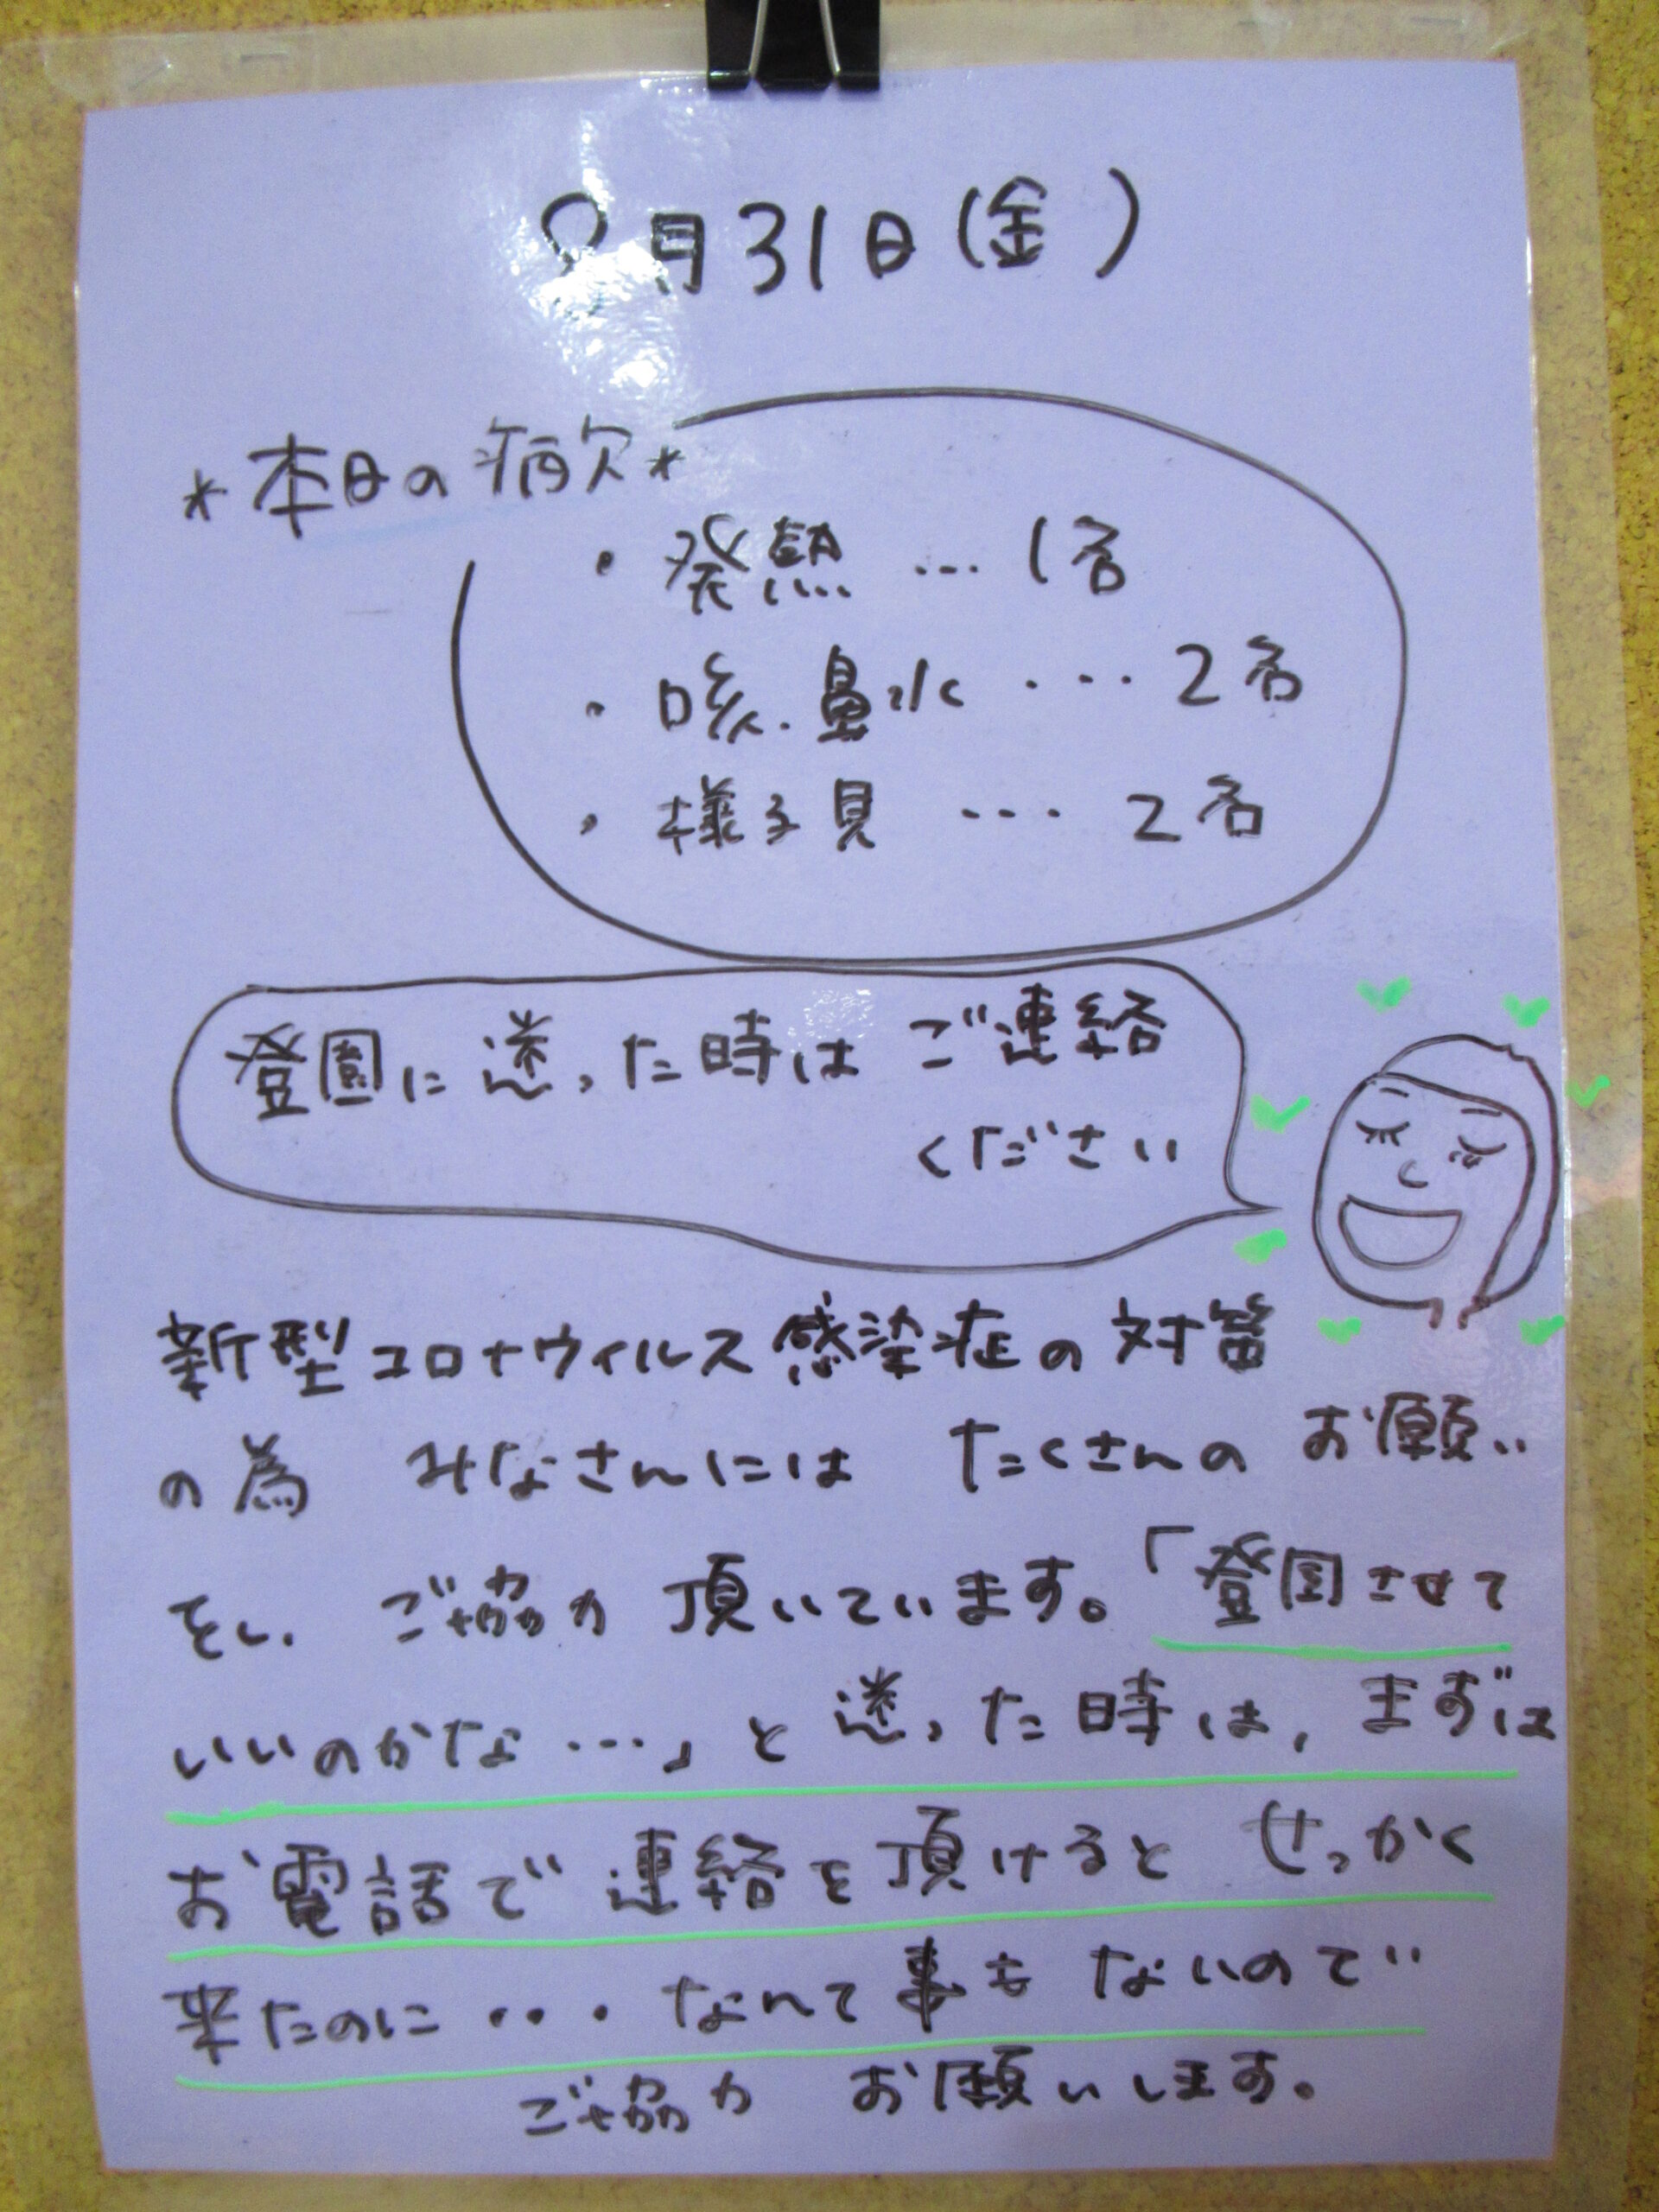 8月31日(金)
*本日の病欠*
・発熱 … 1名
・咳.鼻水 … 2名
・様子見 … 2名
登園に迷った時は ご連絡
ください
新型コロナウィルス感染症の対策
の為 みなさんには たくさんの お願い
をし、 ご協力 頂いています。「登園させて
いいのかな…」と迷った時は、まずは
お電話で連絡を頂けると せっかく
来たのに・・・なんて事も ないので
ご協力 お願いします。